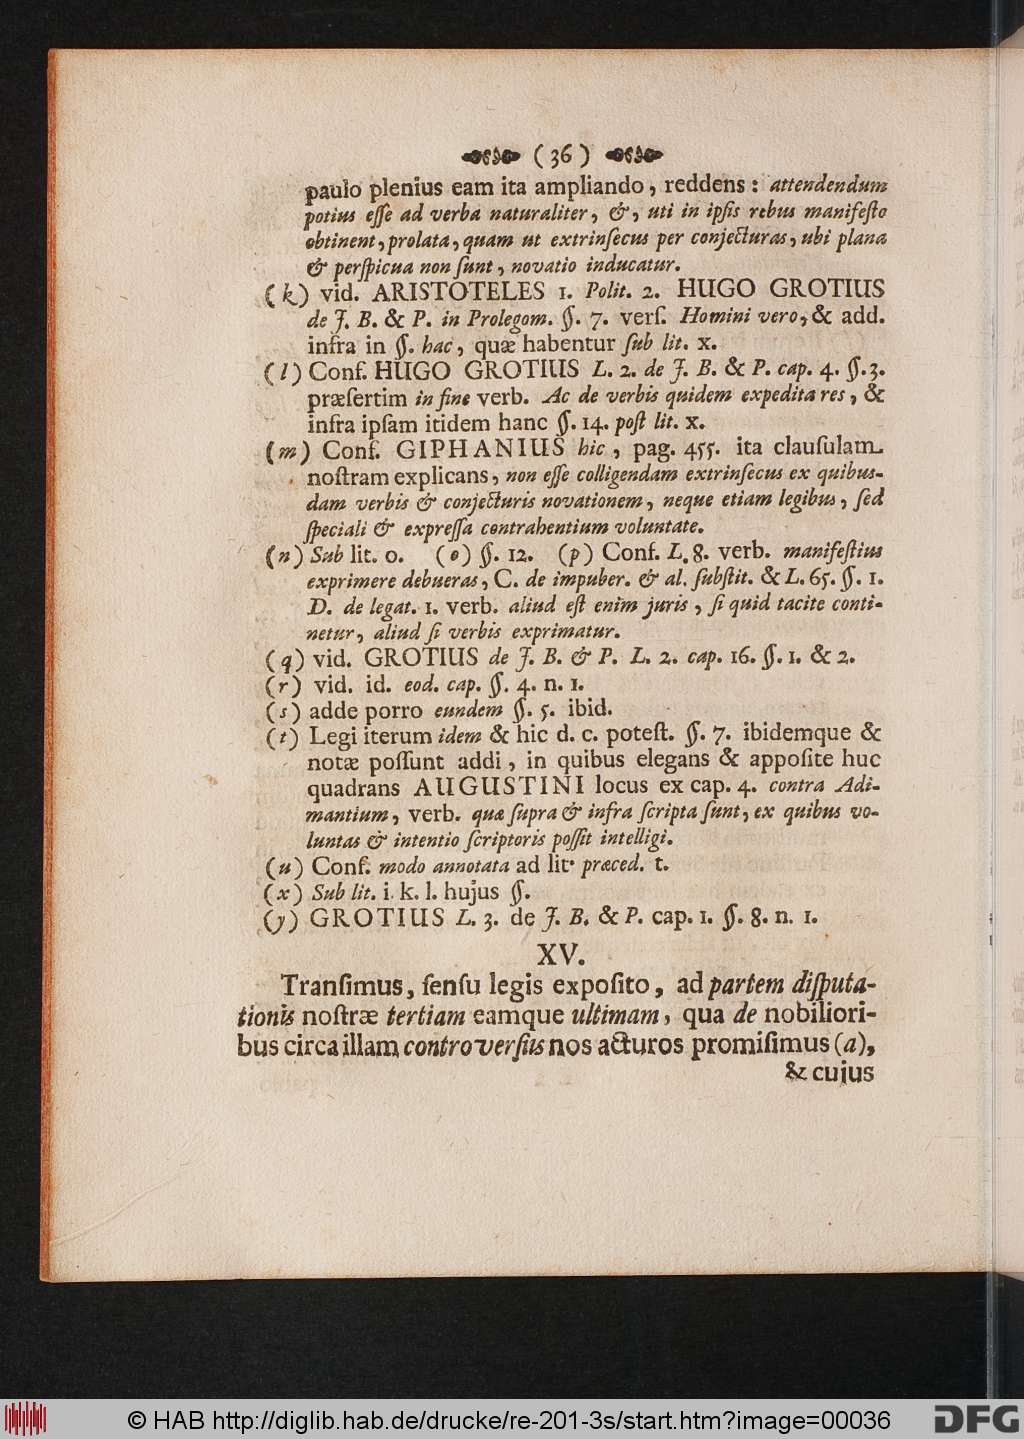 ( 36 )
paulo plenius eam ita ampliando, reddens: attendendum
potius eſſe ad verba naturaliter, &, uti in ipſis rebus manifeſto
obtinent, prolata, quam ut extrinſecus per conjecturas, ubi plana
& perſpicua non ſunt, novatio inducatur.
(k) vid. ARISTOTELES 1. Polit. 2. HUGO GROTIUS
de J. B. & P. in Prolegom. §. 7. verſ. Homini vero, & add.
infra in §. hac, quæ habentur ſub lit. x.
(l) Conf. HUGO GROTIUS L. 2. de J. B. & P. cap. 4. §. 3.
præſertim in fine verb. Ac de verbis quidem expedita res, &
infra ipſam itidem hanc §. 14. poſt lit. x.
(m) Conf. GIPHANIUS hic, pag. 455. ita clauſulam
noſtram explicans, non eſſe colligendam extrinſecus ex quibus-
dam verbis & conjecturis novationem, neque etiam legibus, ſed
ſpeciali & expreſſa contrahentium voluntate.
(n) Sub lit. o. (o) §. 12. (p) Conf. L. 8. verb. manifeſtius
exprimere debueras, C. de impuber. & al. ſubſtit. & L. 65. §. 1.
D. de legat. 1. verb. aliud eſt enim juris, ſi quid tacite conti-
netur, aliud ſi verbis exprimatur.
(q) vid. GROTIUS de J. B. & P. L. 2. cap. 16. §. 1. & 2.
(r) vid. id. eod. cap. §. 4. n. 1.
(s) adde porro eundem §. 5. ibid.
(t) Legi iterum idem & hic d. c. poteſt. §. 7. ibidemque &
notæ poſſunt addi, in quibus elegans & appoſite huc
quadrans AUGUSTINI locus ex cap. 4. contra Adi-
mantium, verb. quæ ſupra & infra ſcripta ſunt, ex quibus vo-
luntas & intentio ſcriptoris poſſit intelligi.
(u) Conf. modo annotata ad lit. præced. t.
(x) Sub lit. i. k. l. hujus §.
(y) GROTIUS L. 3. de J. B. & P. cap. 1. §. 8. n. 1.
XV.
Tranſimus, ſenſu legis expoſito, ad partem diſputa-
tionis noſtræ tertiam eamque ultimam, qua de nobiliori-
bus circa illam controverſiis nos acturos promiſimus (a),
& cujus
© HAB http://diglib.hab.de/drucke/re-201-3s/start.htm?image=00036
DFG